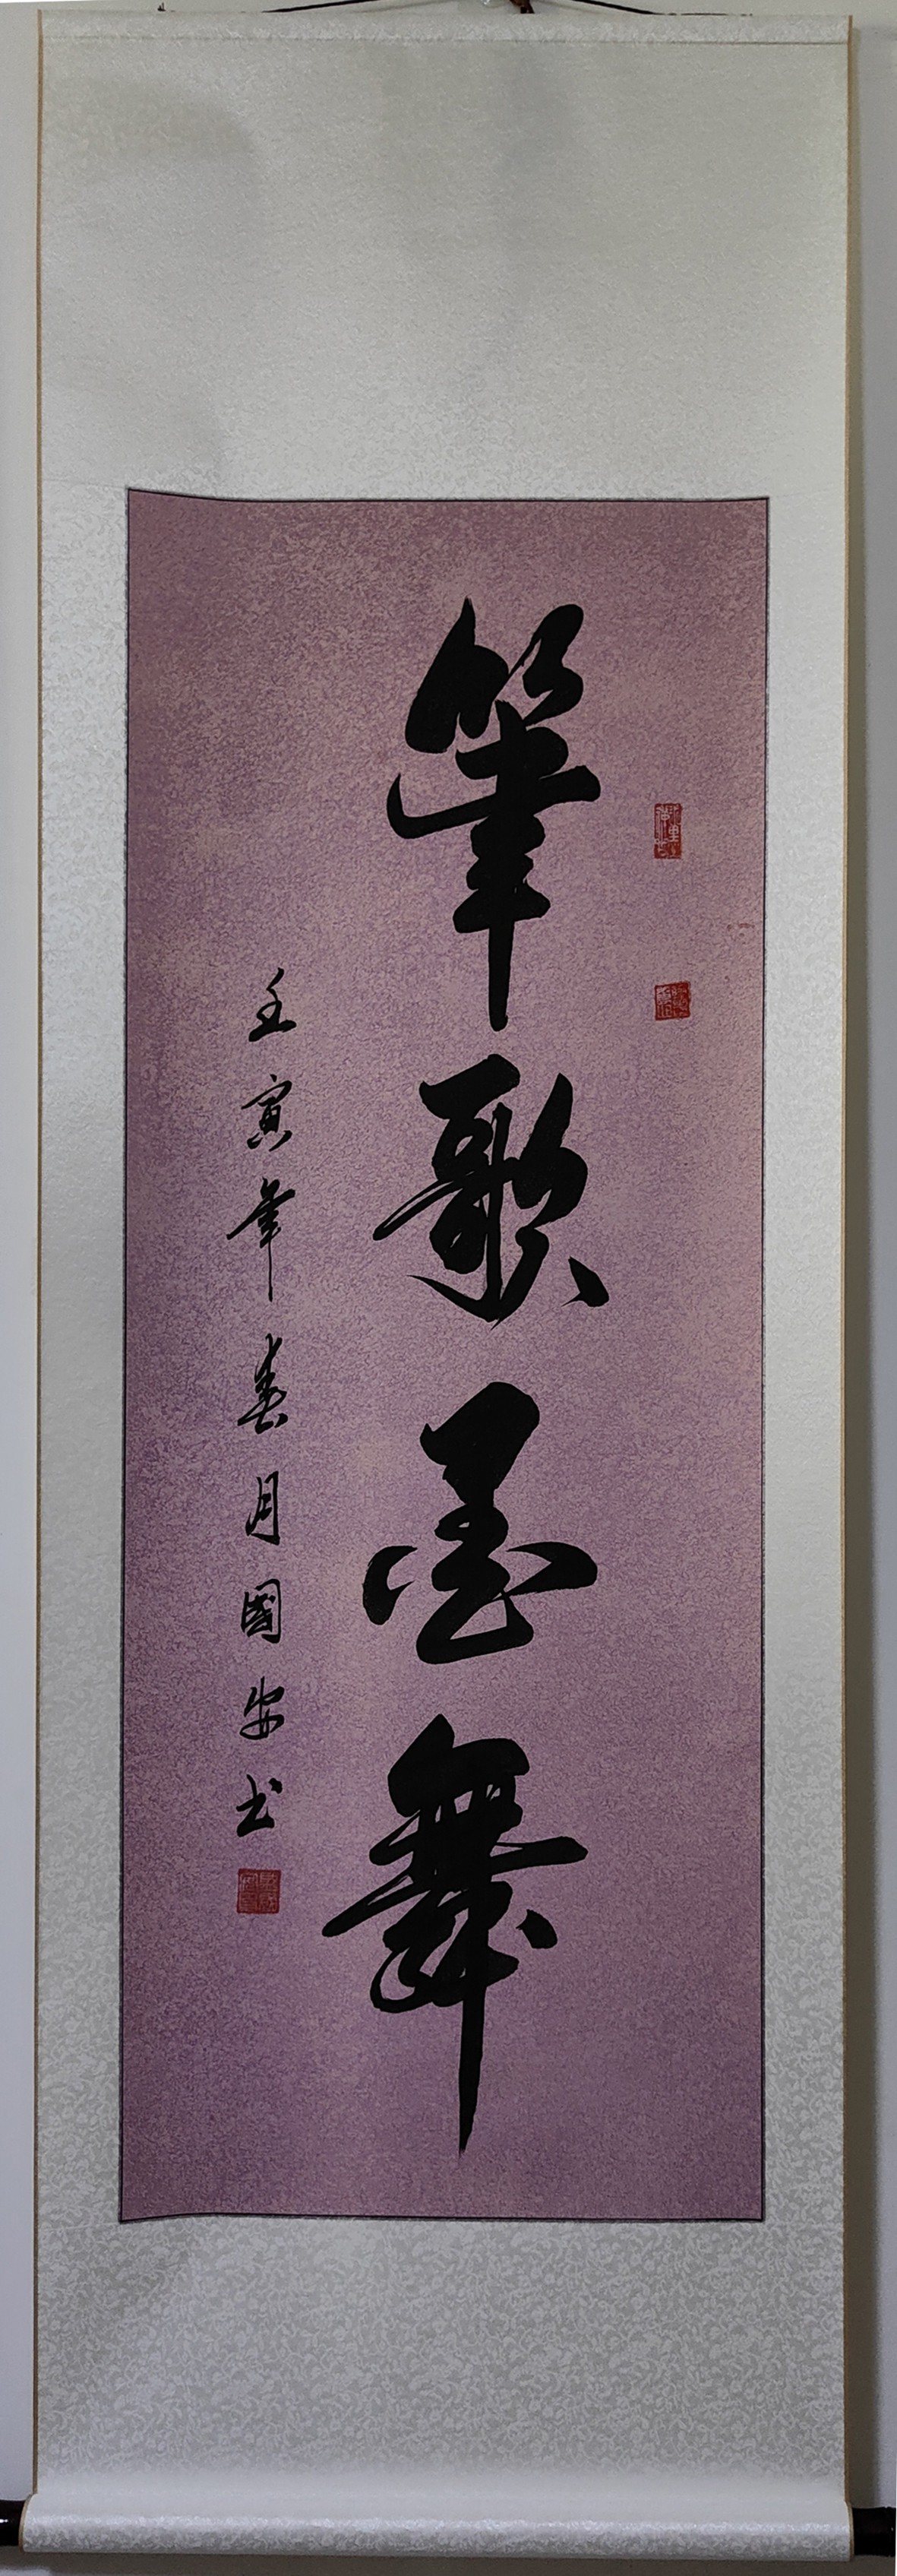 筆歌墨舞
壬寅年春月國安书